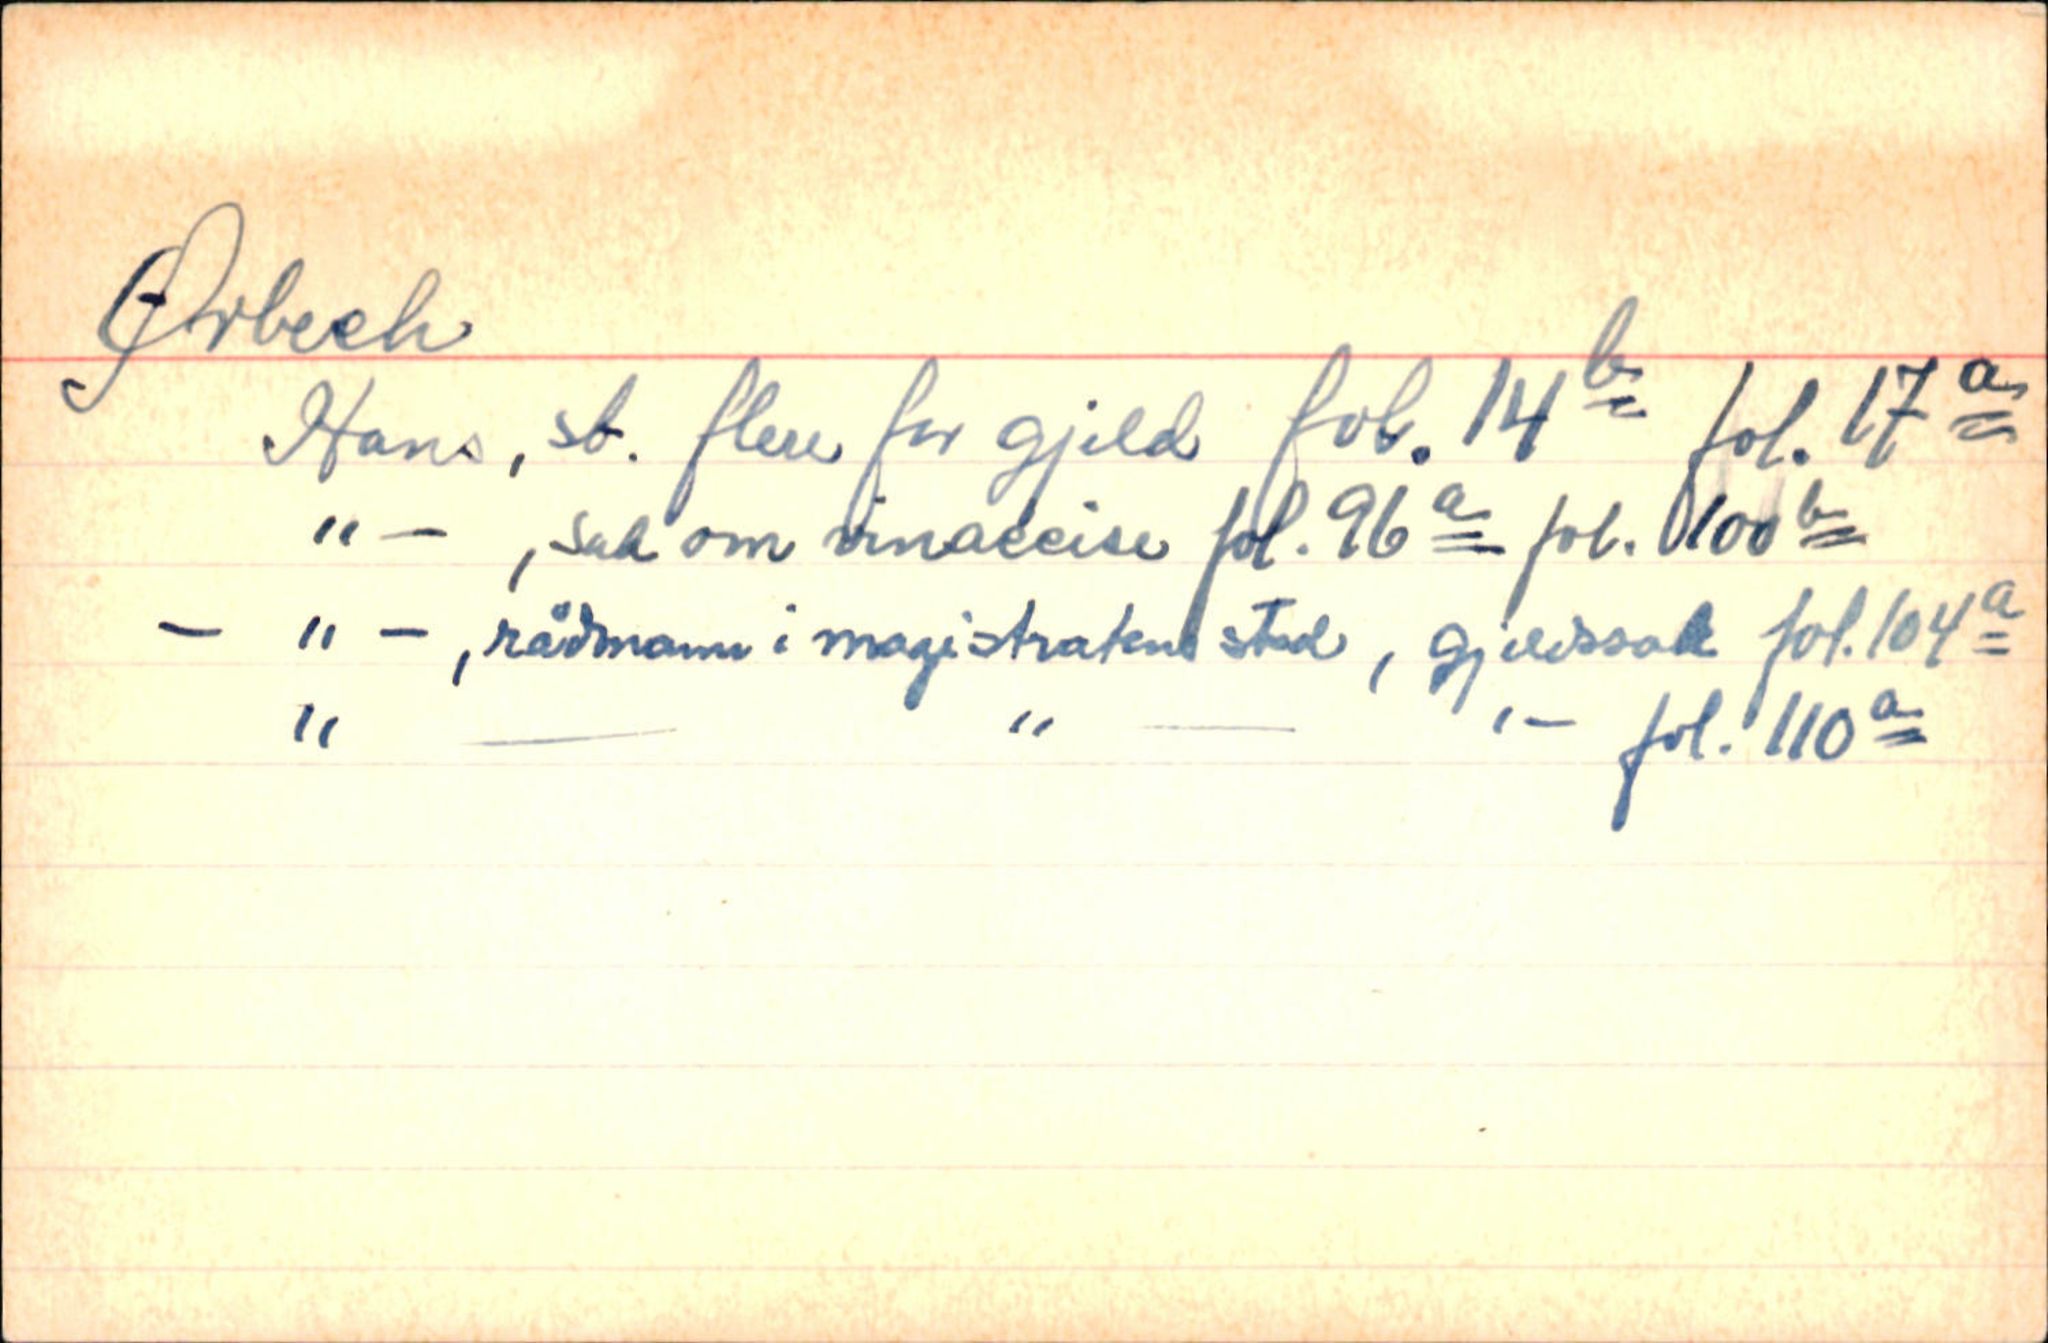 Ørbech
Hans, st. flere for gjeld fol. 14b fol. 17a
" - , sak om vinaccise fol. 96a fol. 100b
- " - , rådmann i magistratens sted, gjeldssak fol. 104a
" — " — " - fol. 110a